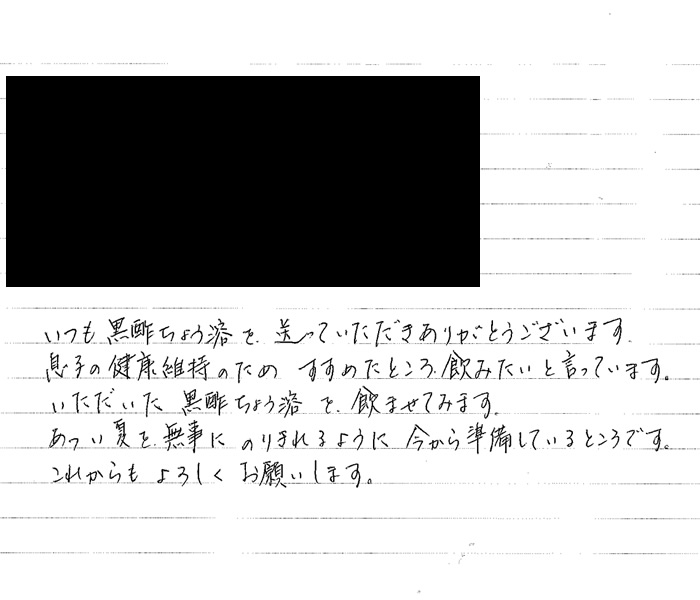 いつも黒酢ちょう溶を、送っていただきありがとうございます。
息子の健康維持のため すすめたところ、飲みたいと言っています。
いただいた 黒酢ちょう溶 を、飲ませてみます。
あつい夏を、無事に のりきれるように 今から準備しているところです。
これからも よろしく お願いします。